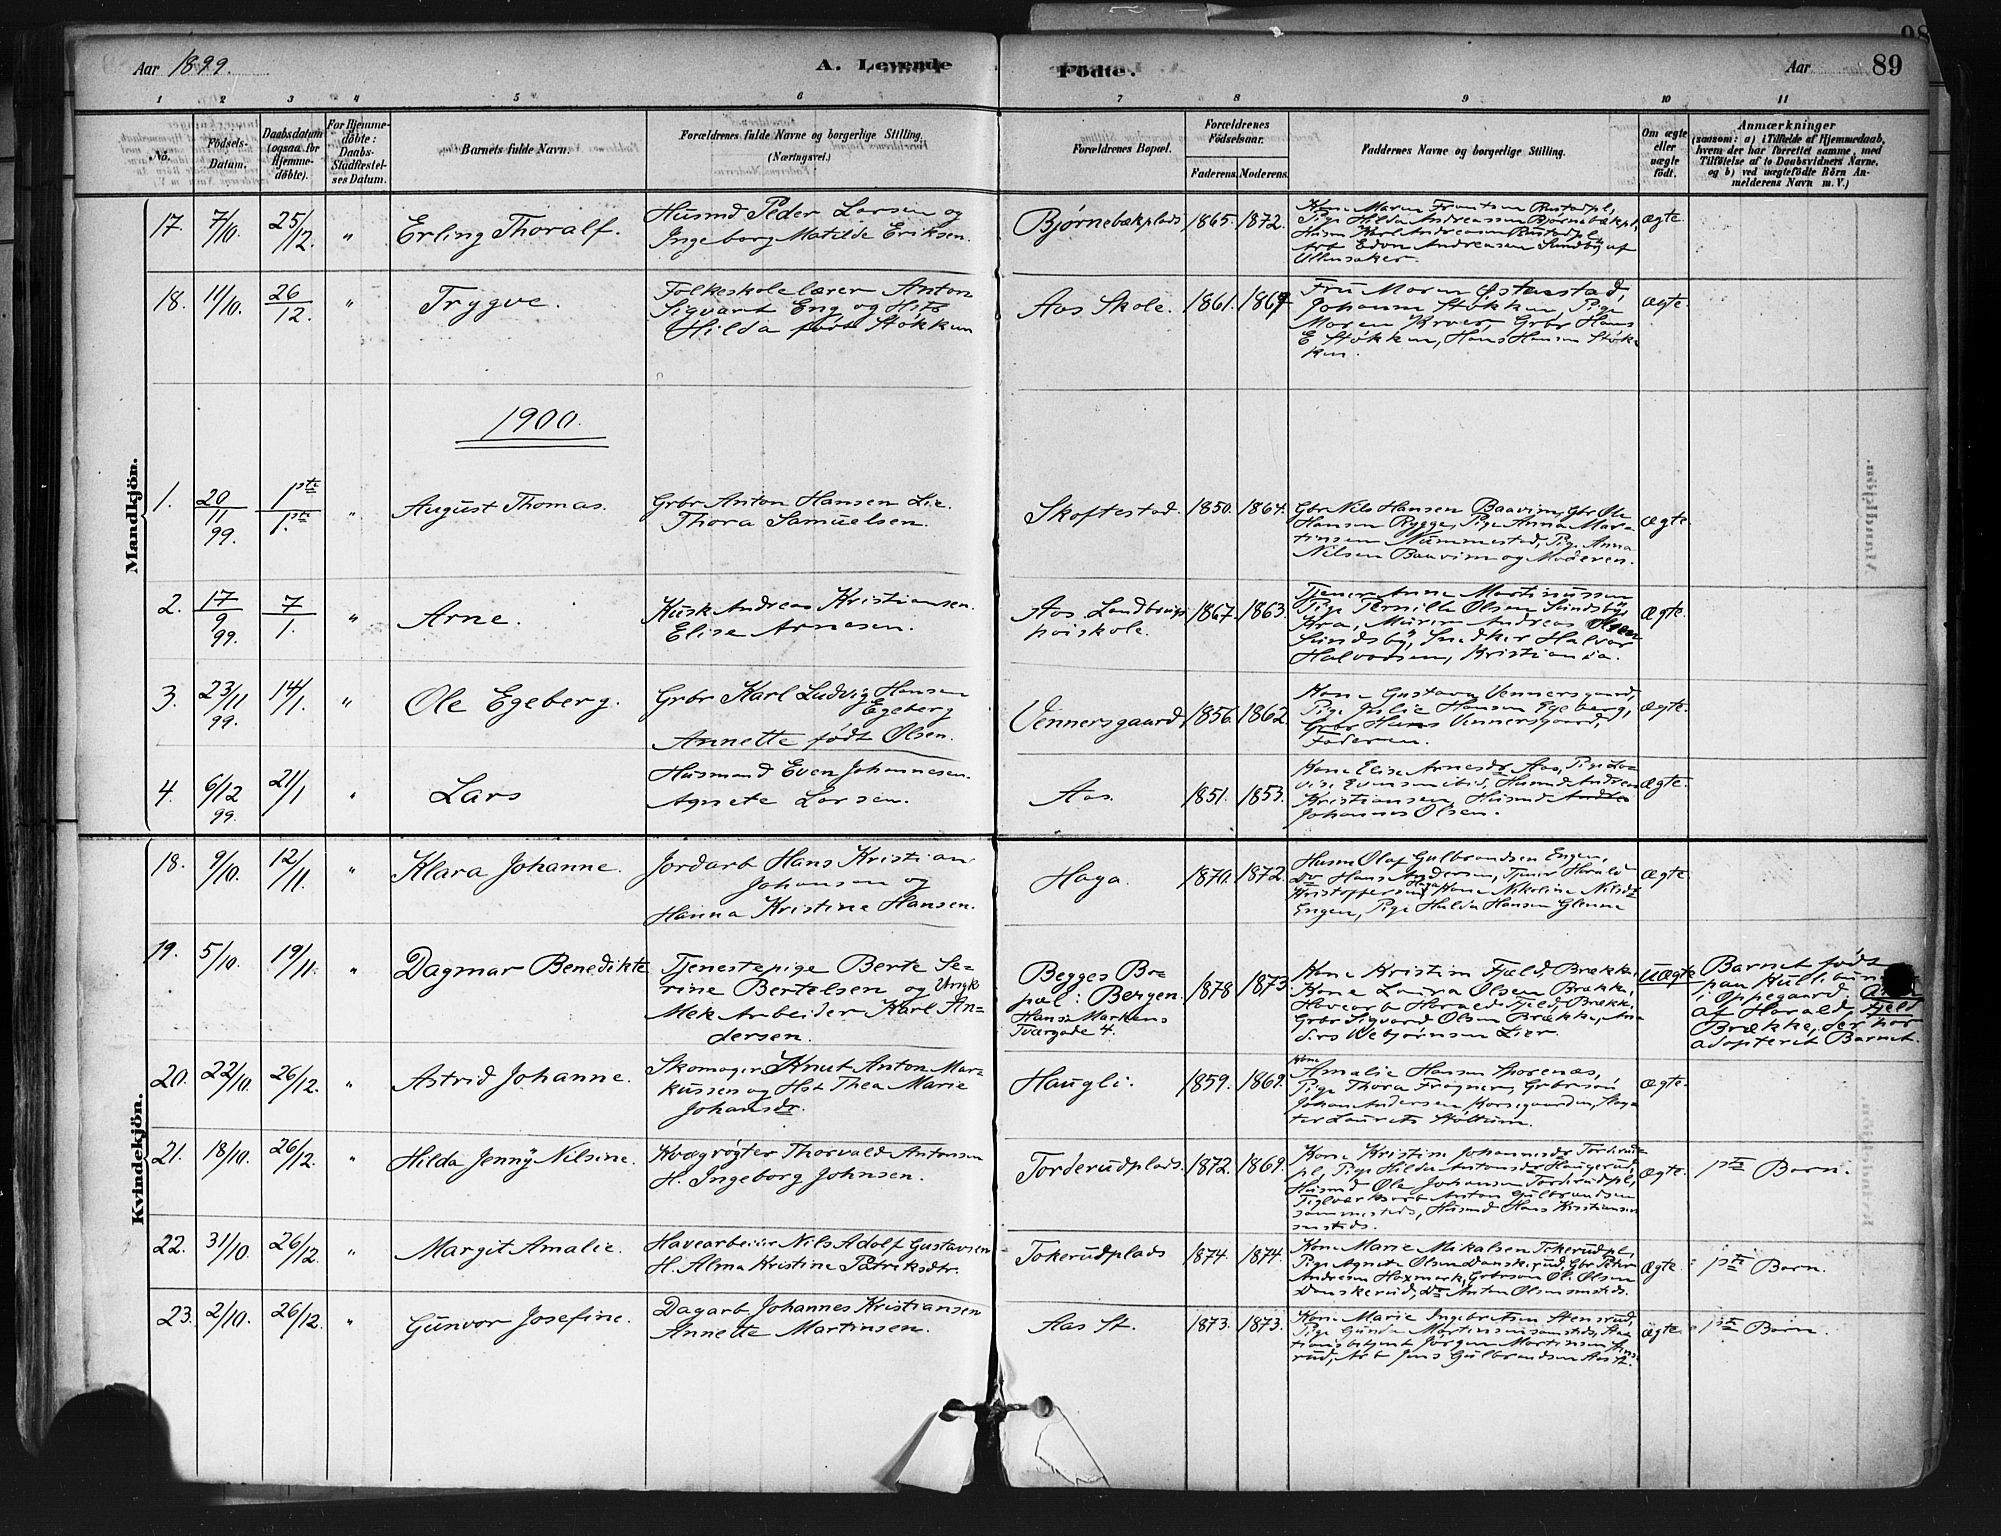 Aar 1899.
A. Levende Födte.
Aar
89
1 2 3 4 5 6 7 8 9 10 11
No.
Födsels-Datum.
Daabsdatum (ogsaa for Hjemmedöbte).
For Hjemmedöbte: Daabs-Stadfæstelses Datum.
Barnets fulde Navn.
Forældrenes fulde Navne og borgerlige Stilling.
(Næringsvei.)
Forældrenes Bopæl.
Forældrenes Födselsaar.
Faderens. Moderens.
Faddernes Navne og borgerlige Stilling.
Om ægte eller uægte födt.
Anmærkninger
(saasom: a) i Tilfælde af Hjemmedaab,
hvem der har forrettet samme, med
Tilföielse af to Daabsvidners Navne,
og b) ved uægtefödte Börn An-
melderens Navn m. V.)
Mandkjön.
17. 7/10. 25/12. " Erling Thoralf.
Husmd Peder Larsen og
Ingeborg Matilde Eriksen.
Bjørnebækplads 1865. 1872.
Kone Maren Frantsen Rustadpl,
Pige Hilda Andreassen Bjørnebækpl,
Husm Karl Andreasen Rustadpl,
Arb Edvn Andreasen Sundby af
Ullensaker.
Ægte.
18. 11/10. 26/12. " Trygve.
Folkeskolelærer Anton
Sigvart Eng og Hst
Hilda født Støkken
Aas Skole. 1861. 1869
Fru Maren Østenstad,
Johanne Støkken, Pige
Maren Kroer, Grbr Hans
E Støkken, Hans Hansen Støk-
ken.
Ægte.
1900.
1. 20/11 99. 1ste/1ste. " August Thomas.
Grbr Anton Hansen Lie
Thora Samuelsen.
Skoftestad. 1850. 1864.
Gbr Nils Hansen Baavim, Gbr Ole
Hansen Rygge, Pige Anna Mar-
tinsen Nummestad, Pige Anna
Nilsen Baavim og Moderen.
Ægte.
2. 17/9 99. 7/1. " Arne.
Kusk Andreas Kristiansen.
Elise Arnesen.
Aas Landbrugs
høiskole.
1867. 1863.
Tjener Anne Martinussen
Pige Pernille Olsen Sundsby,
Kra, Murer Andreas
Sundsby, Snedker Halvor
Halvorsen, Kristiania.
Ægte.
3. 23/11 99. 14/1. " Ole Egeberg.
Grbr Karl Ludvig Hansen
Egeberg
Annette født Olsen.
Vennersgaard 1856. 1862
Kone Gustava Vennersgaard,
Pige Julie Hansen Egeberg,
Grbr Hans Vennersgaard,
Faderen.
Ægte.
4. 6/12 99. 21/1 " Lars
Husmand Even Johannesen.
Agnete Larsen.
Aas. 1851. 1853.
Kone Elise Arnesdr Aas, Pige Lo-
vise Evensen ibid, Husmd Andreas
Kristiansen, Husmd
Johannes Olsen.
Ægte.
Kvindekjön.
18. 9/10. 12/11. " Klara Johanne.
Jordarb Hans Kristian
Johansen og
Hanna Kristine Hansen.
Haga. 1870. 1872.
Husm Olaf Gulbrandsen Engen,
Do Hans Andersen, Tjener Harald
Kristoffersen Haga, Kone Nikoline Nilsdr
Engen, Pige Hulda Hansen Glenne
Ægte.
19. 5/10. 19/11. " Dagmar Benedikte
Tjenestepige Berte Se-
rine Bertelsen og Ungk
Mek Arbeider Karl An-
dersen.
Begges Bo-
pæl: Bergen.
Hans Markens
Tvergade 4.
1878 1873
Kone Kristine Fjeld, Brække,
Kone Laura Olsen Brække,
Havearb Harald Fjeld, Brække,
Grbr Sigvard Olsen Brække, An-
ders Vebjørnsen Lier.
Uægte
Barnet født
paa
i Oppegaard.
af Harald Fjeld
Brække, der har
adopteret Barnet.
20. 22/10. 26/12. " Astrid Johanne.
Skomager Knut Anton Mar-
kussen og Hst Thea Marie
Johansdr.
Haugli. 1859. 1869.
Kone
Amalie Hansen Sporenæs,
Pige Thora Frogner, Grbrsøn
Johan Andersen Korsegaarden,
Laurits Støltum.
Ægte.
21. 18/10. 26/12. " Hilda Jenny Nilsine.
Kvægrøgter Thorvald Antonsen
H. Ingeborg Johnsen.
Torderudplads. 1872. 1869.
Kone Kristine Johannesdr Torderud-
pl, Pige Hilda Antonsdr Haugerud,
Husmd Ole Johansen Torderudpl,
Teglverksarb Anton Gulbrandsen
sammesteds, Husmd Hans Kristiansen
smsteds.
Ægte. 1ste Barn.
22. 31/10. 26/12. " Margit Amalie.
Havearbeider Nils Adolf Gustavsen
H. Alma Kristine Patriksdtr.
Tokerudplads 1874. 1874.
Kone Marie Mikalsen Tokerudpl,
Pige Agnete Olsen Danskerud, Gbr Peter
Andresen Haxmark, Grbrsøn Ole Olsen
Danskerud, Do Anton Olsen smsteds.
Ægte. 1ste Barn.
23. 2/10. 26/12. " Gunvor Josefine.
Dagarb Johannes Kristiansen
Annette Martinsen.
Aas St. 1873. 1873.
Kone Marie Ingebretsen Stensrud,
Pige Gunda Martinsen samsteds, Sta-
tionsbetjent Jørgen Martinsen Stens-
rud, Arb Jens Gulbrandsen Aas St.
Ægte 1ste Barn.